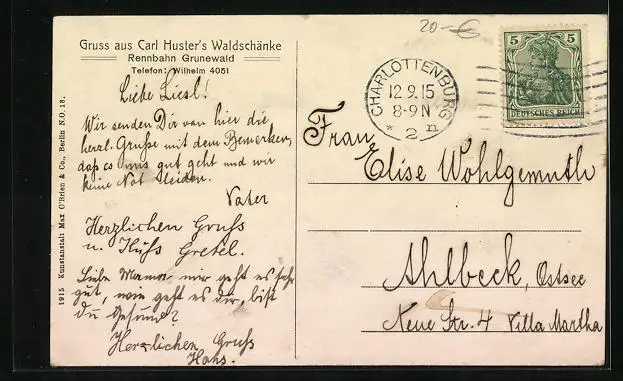 20-€
Gruss aus Carl Huster's Waldschänke
Rennbahn Grunewald
Telefon: Wilhelm 4051
Liebe Liesl!
Wir senden Dir von hier die
herzl. Grüße mit dem Bemerken,
daß es uns gut geht und wir
keine Not leiden.
Vater
Herzlichen Gruss
u. Kuss Gretel.
Liebe Mama, mir geht es sehr
gut, wie geht es dir, bist
du gesund?
Herzlichen Gruss
Hans.
1915 Kunstanstalt Max O'Brien & Co., Berlin N.O. 18.
CHARLOTTENBURG
12.9.15
8-9N
* 2 n
5 5
DEUTSCHES REICH
Frau
Elise Wohlgemuth
Ahlbeck, Ostsee
Neue Str. 4 Villa Martha